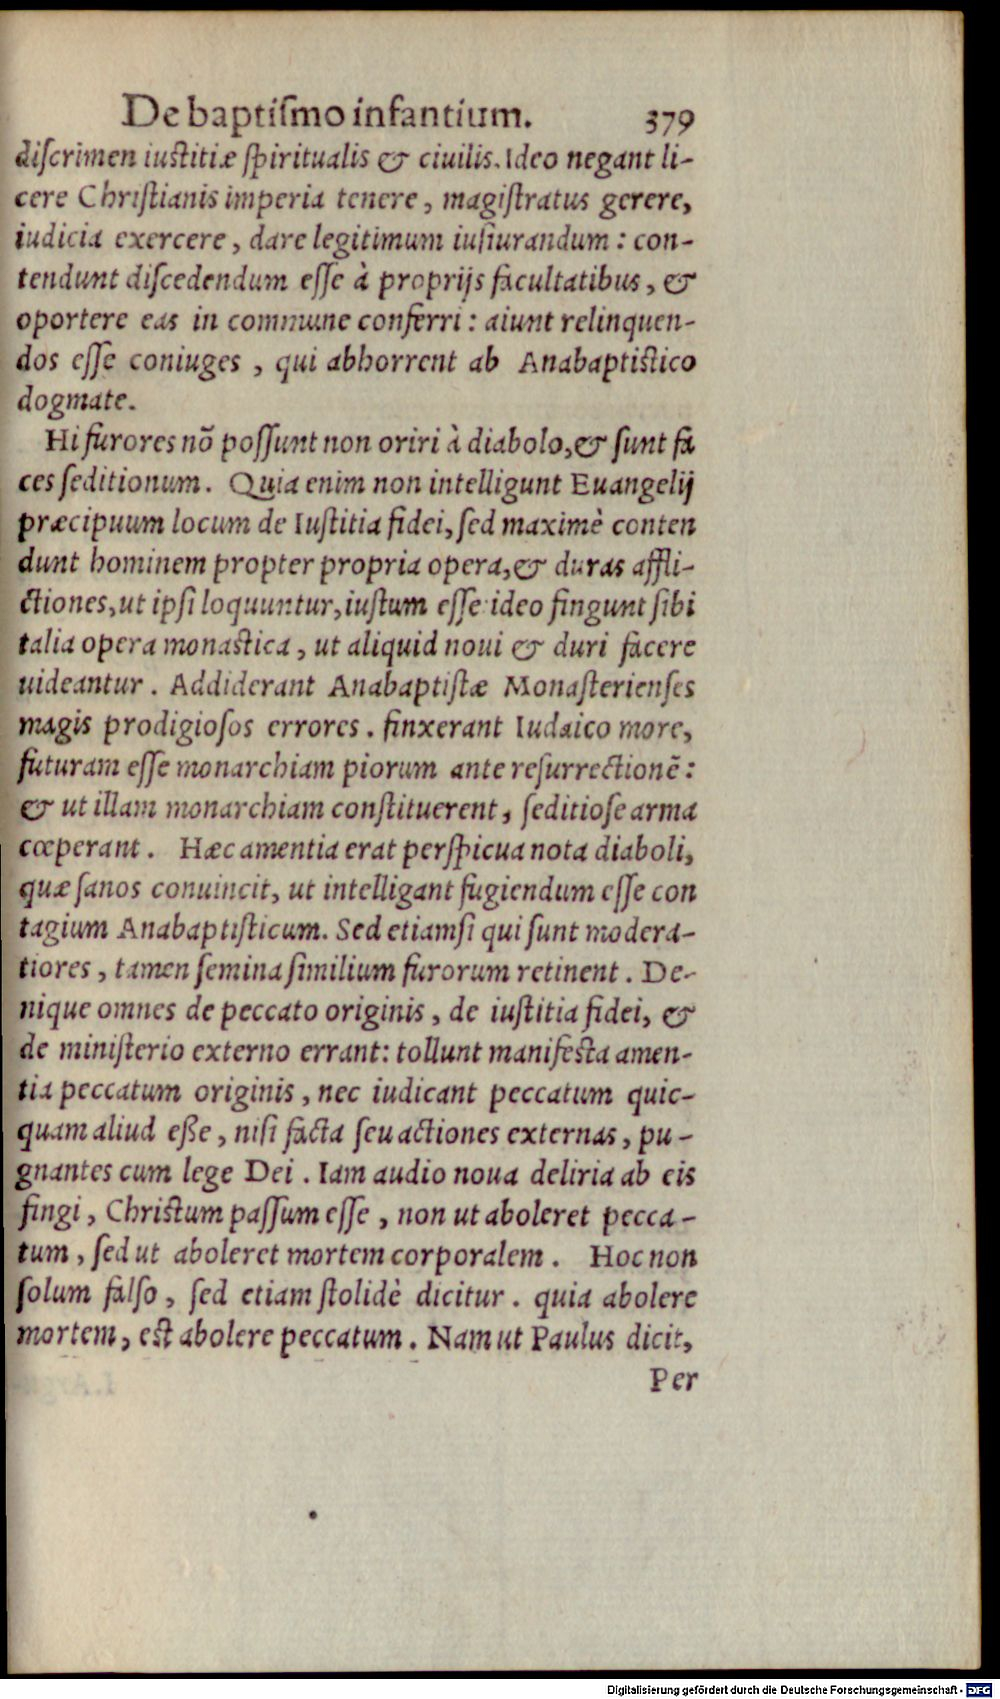 De baptiſmo infantium. 379
diſcrimen iuſtitiæ ſpiritualis & ciuilis. Ideo negant li-
cere Chriſtianis imperia tenere, magiſtratus gerere,
iudicia exercere, dare legitimum iuſiurandum: con-
tendunt diſcedendum eſſe à proprijs facultatibus, &
oportere eas in commune conferri: aiunt relinquen-
dos eſſe coniuges, qui abhorrent ab Anabaptiſtico
dogmate.
Hi furores nõ poſſunt non oriri à diabolo, & ſunt fa
ces ſeditionum. Quia enim non intelligunt Euangelij
præcipuum locum de Iuſtitia fidei, ſed maximè conten
dunt hominem propter propria opera, & duras affli-
ctiones, ut ipſi loquuntur, iuſtum eſſe: ideo fingunt ſibi
talia opera monaſtica, ut aliquid noui & duri facere
uideantur. Addiderant Anabaptiſtæ Monaſterienſes
magis prodigioſos errores. finxerant Iudaico more,
futuram eſſe monarchiam piorum ante reſurrectionē:
& ut illam monarchiam conſtituerent, ſeditioſe arma
cœperant. Hæc amentia erat perſpicua nota diaboli,
quæ ſanos conuincit, ut intelligant fugiendum eſſe con
tagium Anabaptiſticum. Sed etiamſi qui ſunt modera-
tiores, tamen ſemina ſimilium furorum retinent. De-
nique omnes de peccato originis, de iuſtitia fidei, &
de miniſterio externo errant: tollunt manifeſta amen-
tia peccatum originis, nec iudicant peccatum quic-
quam aliud eße, niſi facta ſeu actiones externas, pu-
gnantes cum lege Dei. Iam audio noua deliria ab eis
fingi, Chriſtum paſſum eſſe, non ut aboleret pecca-
tum, ſed ut aboleret mortem corporalem. Hoc non
ſolum falſo, ſed etiam ſtolidè dicitur. quia abolere
mortem, eſt abolere peccatum. Nam ut Paulus dicit,
Per
Digitalisierung gefördert durch die Deutsche Forschungsgemeinschaft - DFG